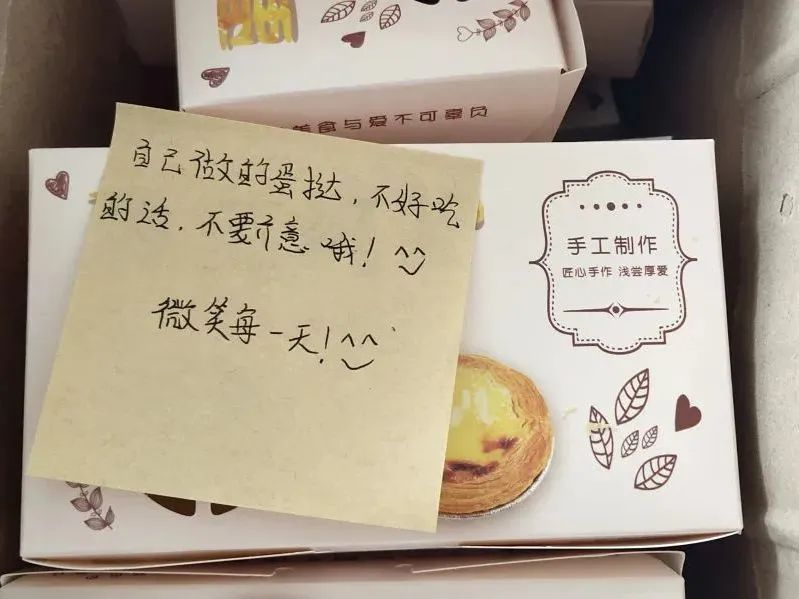 美食与爱不可辜负
自己做的蛋挞，不好吃
的话，不要介意哦！^^
微笑每一天！^^
手工制作
匠心手作 浅尝厚爱